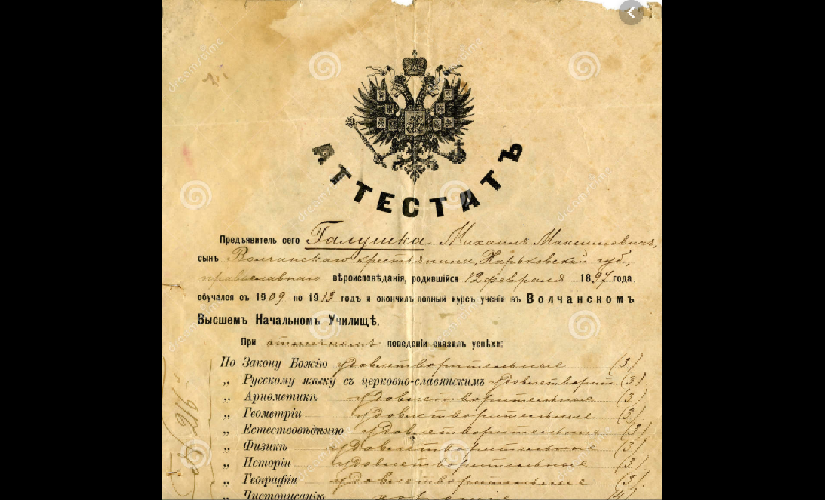 АТТЕСТАТЪ
Предъявитель сего Галушка Михаилъ Максимовичъ,
сынъ Волчанскаго крестьянина, Харьковской губ.
православнаго вѣроисповѣданія, родившійся 12 февраля 1897 года
обучался съ 1909 по 1913 годъ и окончилъ полный курсъ ученія въ Волчанскомъ
Высшемъ Начальномъ Училищѣ.
При отличномъ поведеніи оказалъ успѣхи:
По Закону Божію удовлетворительные (3)
„ Русскому языку съ церковно-славянскимъ удовлетворит (3)
„ Ариѳметикѣ удовлетворительные (3)
„ Геометріи удовлетворительные (3)
„ Естествовѣдѣнію удовлетворительные (3)
„ Физикѣ удовлетворительные (3)
„ Исторіи удовлетворительные (3)
„ Географіи удовлетворительные (3)
„ Чистописанію хорошіе (4)